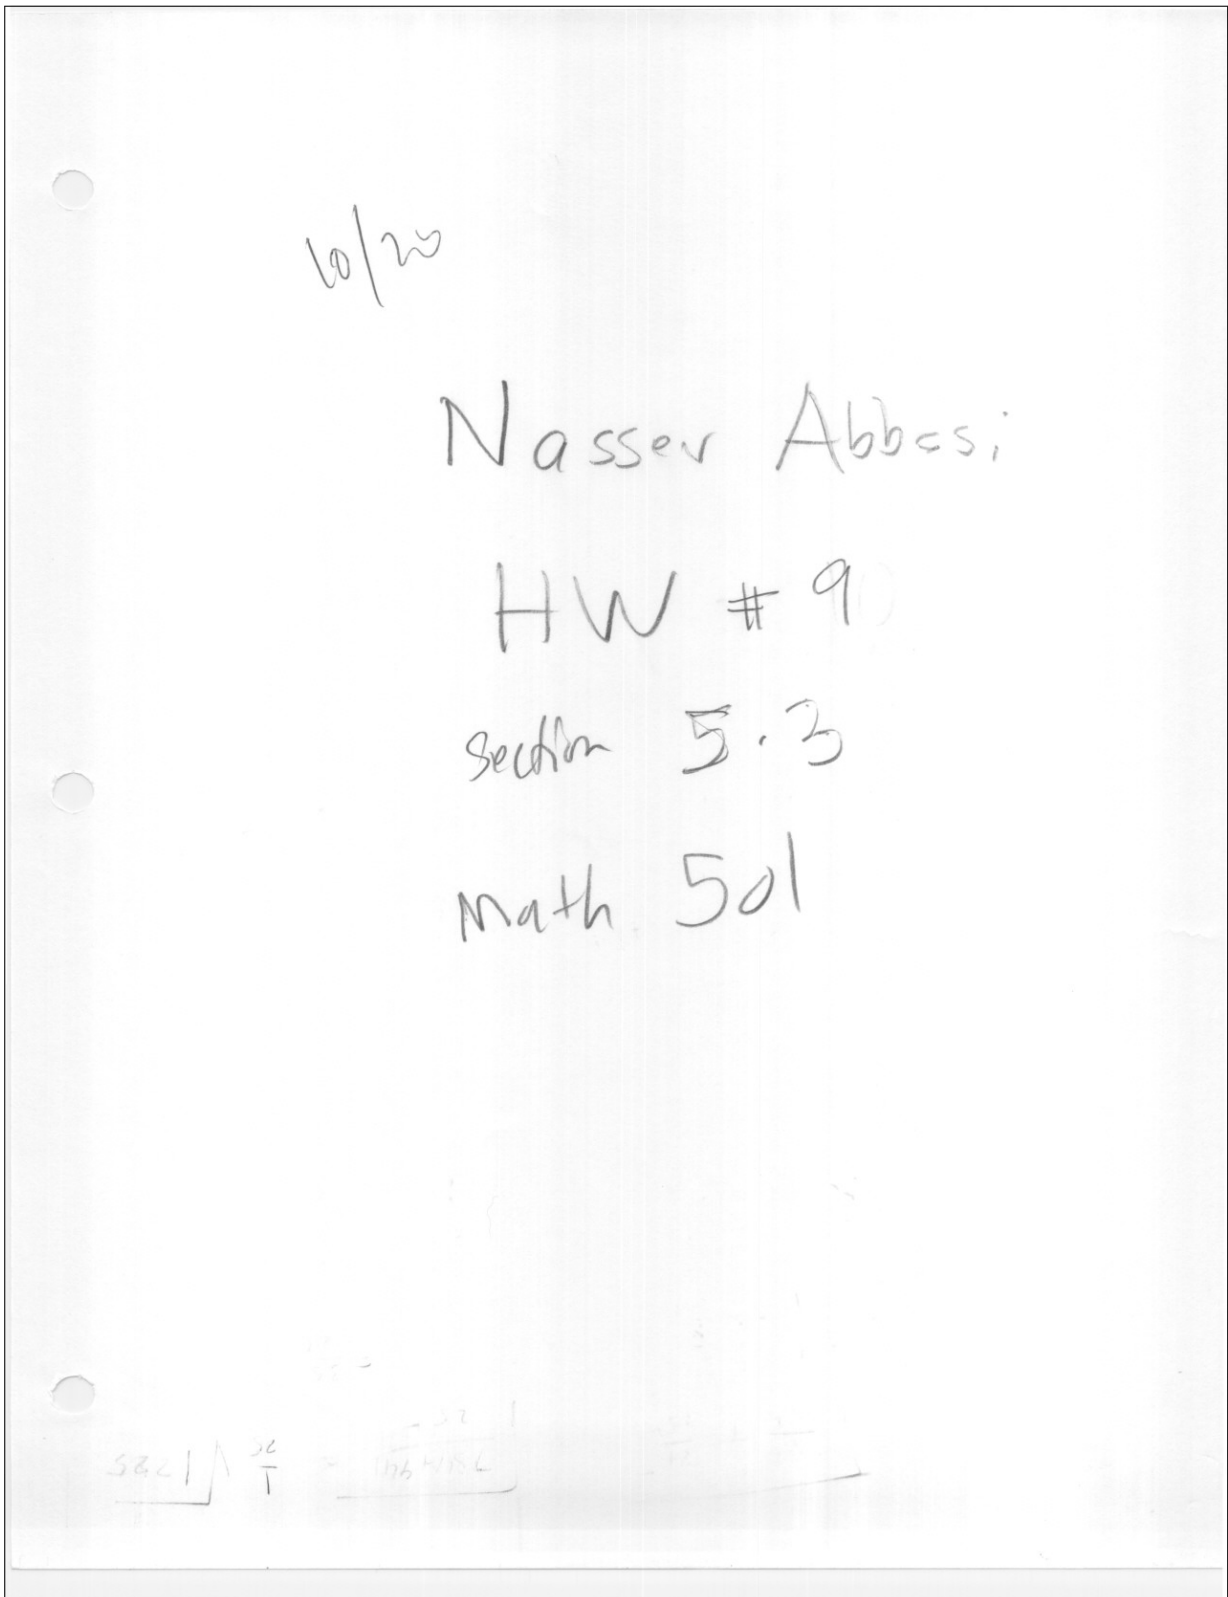 10/20
Nasser Abbasi
HW # 9
section 5.3
Math 501